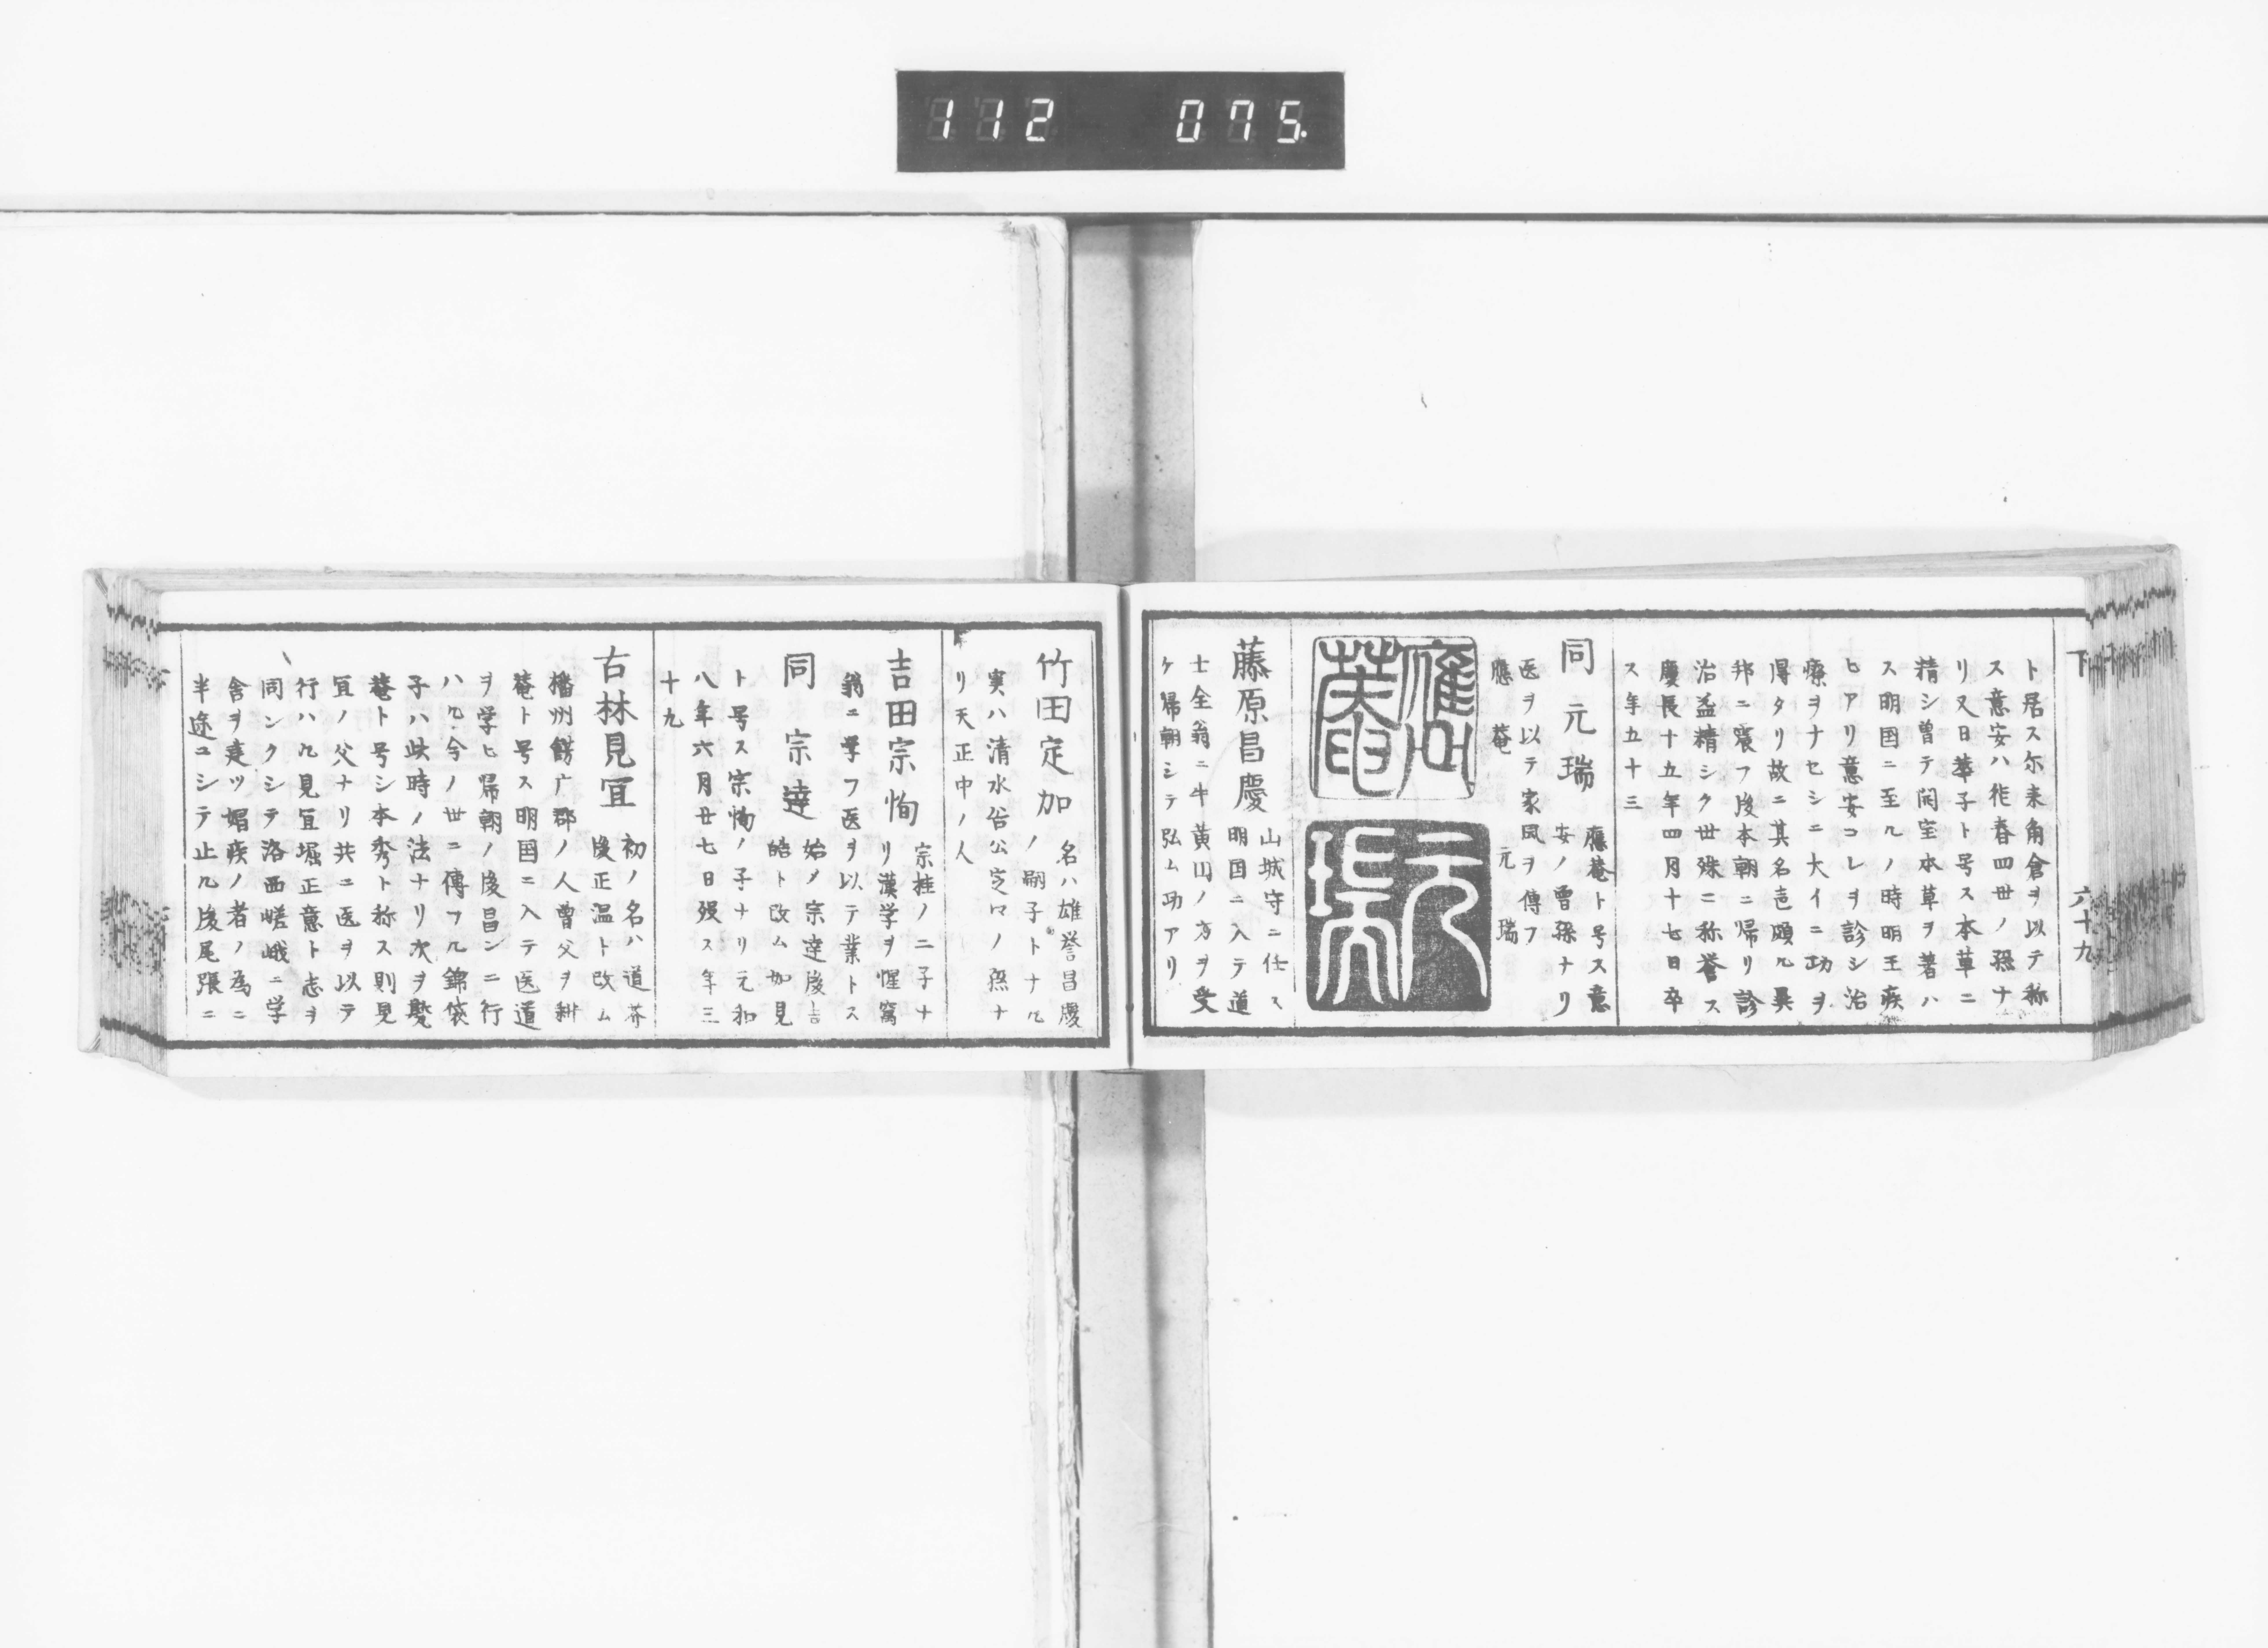 112 075
下 六十九
ト居ス尓来角倉ヲ以テ称
ス意安ハ徳春四世ノ孫ナ
リ又日華子ト号ス本草ニ
精シ曽テ開宝本草ヲ著ハ
ス明国ニ至ルノ時明王疾
ヒアリ意安コレヲ診シ治
療ヲナセシニ大イニ功ヲ
得タリ故ニ其名
邦ニ震フ後本朝ニ帰リ診
治益精シク世殊ニ称誉ス
慶長十五年四月十七日卒
ス年五十三
同元瑞 應菴ト号ス意
安ノ曽孫ナリ
医ヲ以テ家風ヲ傳フ
應菴 元瑞
應菴
元瑞
藤原昌慶 山城守ニ仕ス
明国ニ入テ道
士全翁ニ牛黄円ノ方ヲ受
ケ帰朝シテ弘ム功アリ
竹田定加 名ハ雄誉昌慶
ノ嗣子トナル
実ハ清水谷公定ノ孫ナ
リ天正中ノ人
吉田宗恂 宗桂ノ二子ナ
リ漢学ヲ惺窩
翁ニ学フ医ヲ以テ業トス
同宗達 始メ宗達後吉
皓ト改ム如見
ト号ス宗恂ノ子ナリ元和
八年六月廿七日歿ス年三
十九
古林見宜 初ノ名ハ道芥
後正温ト改ム
播州餝广郡ノ人曽父ヲ耕
菴ト号ス明国ニ入テ医道
ヲ学ヒ帰朝ノ後昌ンニ行
ハル今ノ世ニ傳フル錦袋
子ハ此時ノ法ナリ次ヲ
菴ト号シ本秀ト称ス則見
宜ノ父ナリ共ニ医ヲ以テ
行ハル見宜堀正意ト志ヲ
同シクシテ洛西嵯峨ニ学
舎ヲ建ツ媢疾ノ者ノ為ニ
半途ニシテ止ル後尾張ニ